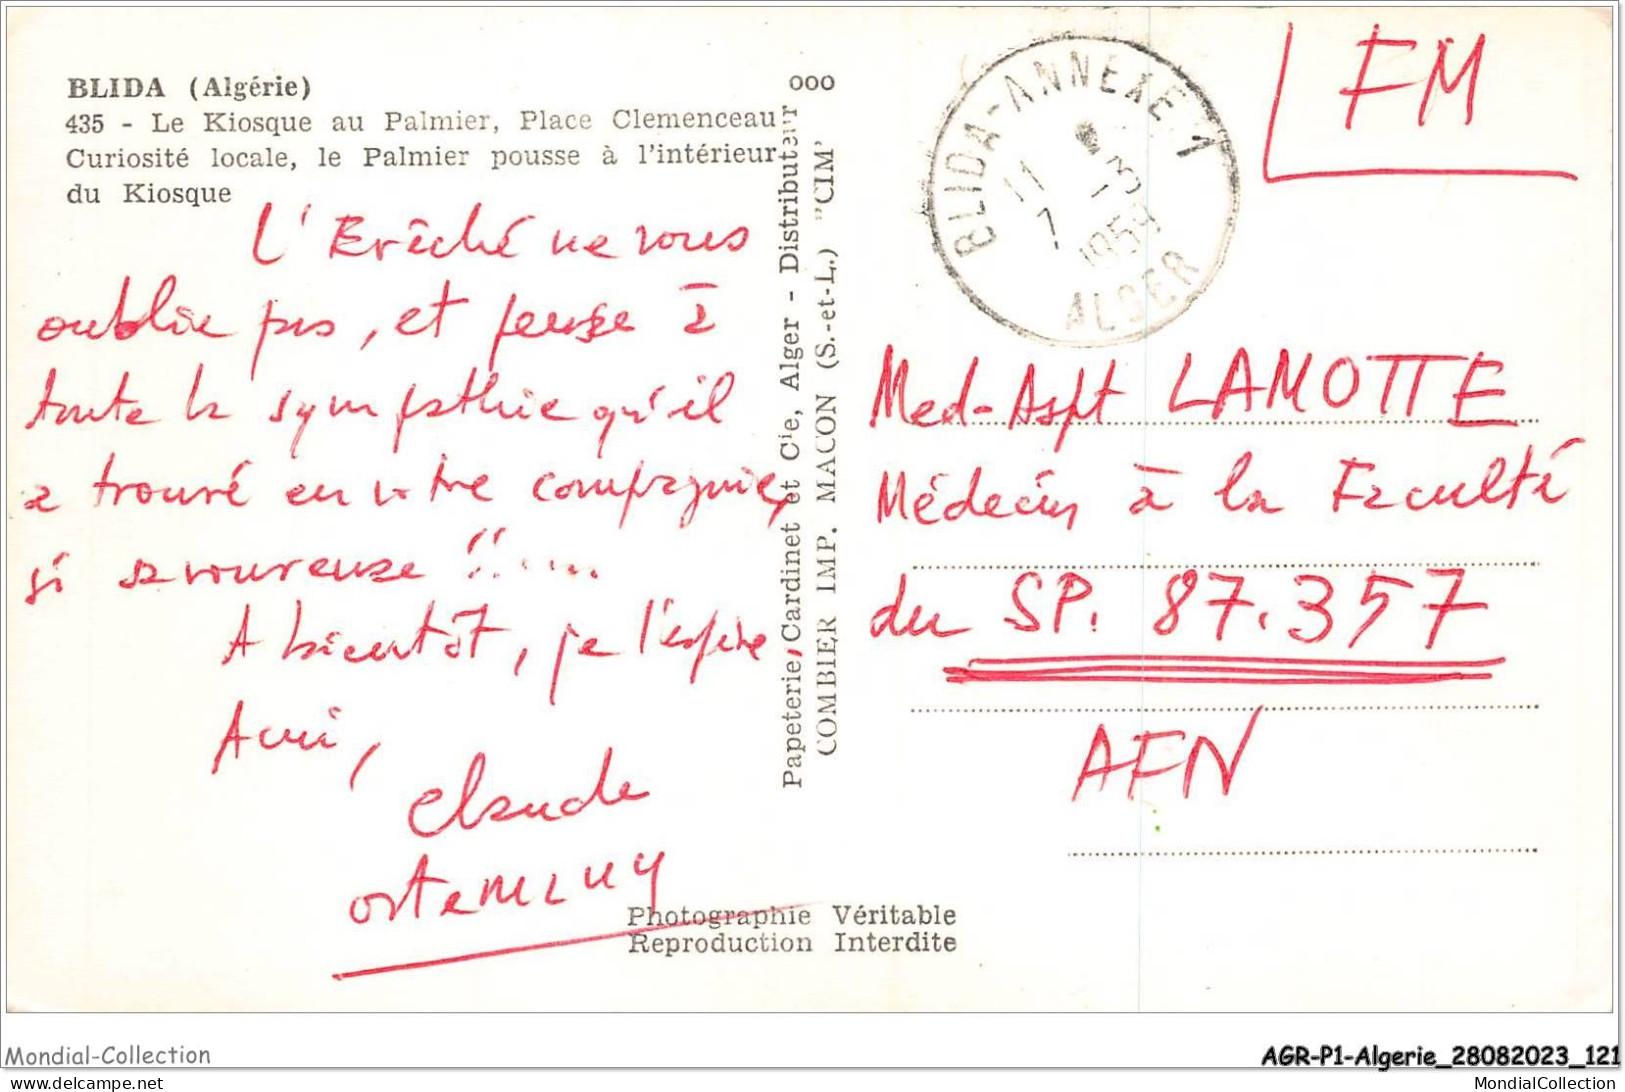 BLIDA (Algérie)
435 - Le Kiosque au Palmier, Place Clemenceau
Curiosité locale, le Palmier pousse à l'intérieur
du Kiosque
L'Evêché ne vous
oublie pas, et pense à
toute la sympathie qu'il
a trouvé en votre compagnie,
si savoureuse !!....
A bientôt, je l'espère
Ami,
Claude
Photographie Véritable
Reproduction Interdite
Papeterie, Cardinet et Cie, Alger - Distributeur
COMBIER IMP. MACON (S.-et-L.) "CIM"
000
BLIDA-ANNEXE 1
11
1959
ALGER
FM
Med-Aspt LAMOTTE
Médecin à la Faculté
du SP. 87.357
AFN
Mondial-Collection
AGR-P1-Algerie_28082023_121
delcampe.net
MondialCollection